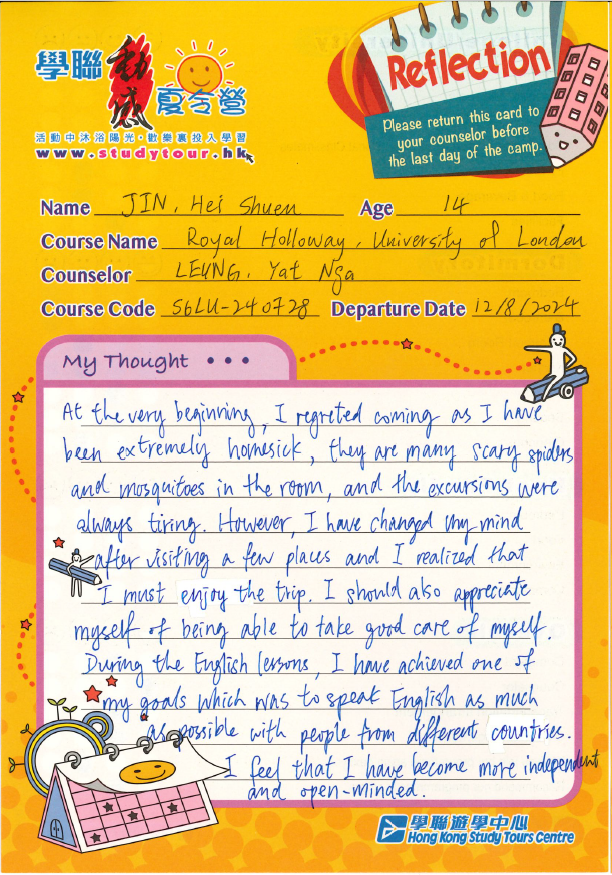 學聯
動感
夏令營
活動中沐浴陽光・歡樂裏投入學習
www.studytour.hk
Reflection
Please return this card to
your counselor before
the last day of the camp.
Name JIN, Hei Shuen Age 14
Course Name Royal Holloway, University of London
Counselor LEUNG, Yat Nga
Course Code S6LU-240728 Departure Date 12/8/2024
My Thought • • •
At the very beginning, I regreted coming as I have
been extremely homesick, they are many scary spiders
and mosquitoes in the room, and the excursions were
always tiring. However, I have changed my mind
after visiting a few places and I realized that
I must enjoy the trip. I should also appreciate
myself of being able to take good care of myself.
During the English lessons, I have achieved one of
my goals which was to speak English as much
as possible with people from different countries.
I feel that I have become more independent
and open-minded.
學聯遊學中心
Hong Kong Study Tours Centre